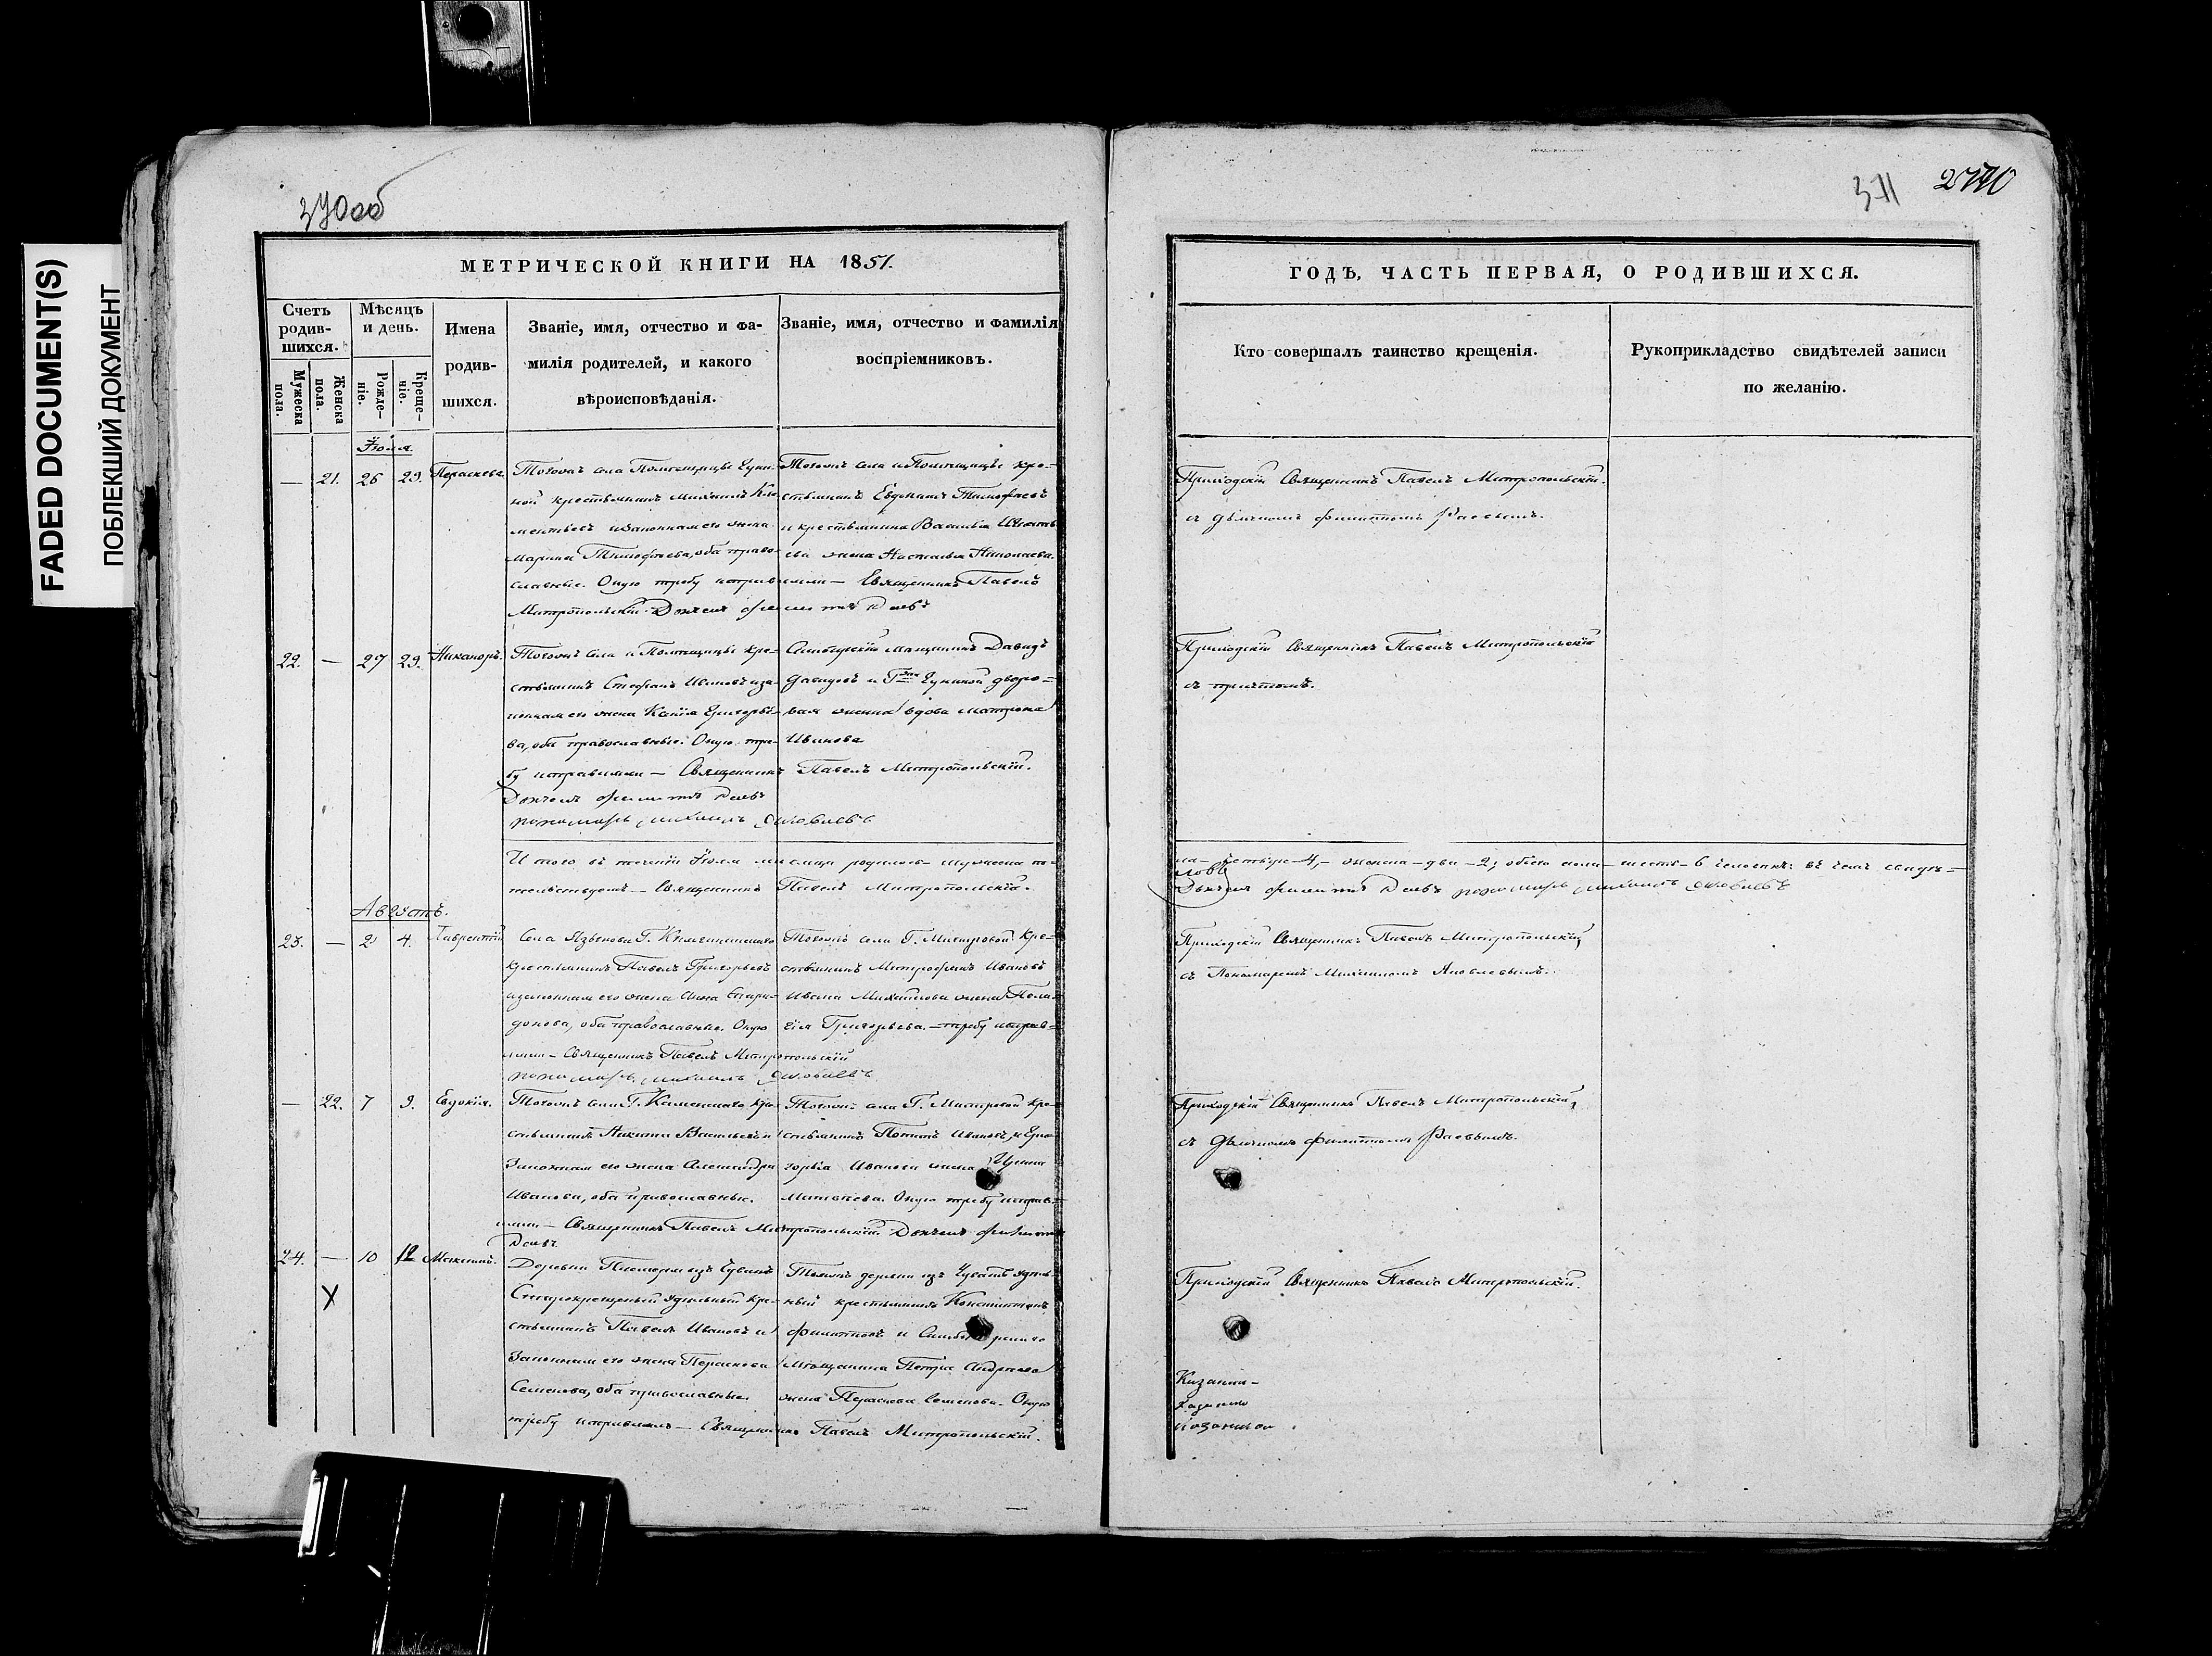 FADED DOCUMENT(S)
ПОБЛЕКШИЙ ДОКУМЕНТ
370об
371
МЕТРИЧЕСКОЙ КНИГИ НА 1851.
Счетъ родив-шихся.
Мужеска пола.
Женска пола.
Мѣсяцъ и день.
Рожде-ніе.
Креще-ніе.
Имена родив-шихся.
Званіе, имя, отчество и фа-
милія родителей, и какого
вѣроисповѣданія.
Званіе, имя, отчество и фамилія
воспріемниковъ.
Іюля.
— 21. 26 29. Параскева.
Тогожъ села Помещицы
ной крестьянинъ Михаилъ Кли
ментьевъ и законная его жена
Марина Тимофѣева, оба право
славные. Оную требу исправляли — Священникъ Павелъ
Митропольскій. Дьячекъ
Тогожъ села и Помещицы кре-
стьянинъ Евдокимъ Тимофѣевъ
и крестьянина Василья
ева жена Настасья Николаева.
22. — 27 29. Никаноръ.
Тогожъ села и Помещицы кре-
стьянинъ Стефанъ Ивановъ и за-
конная его жена Ксенія Григорье-
ва, оба православные. Оную тре-
бу исправляли — Священникъ Павелъ Митропольскій.
Дьячекъ
пономарь Михаилъ Яковлевъ
Симбирскій мѣщанинъ Давидъ
Давидовъ и дворо-
вая женка вдова Матрона
Иванова
Итого въ теченіи Іюля мѣсяца родилось мужеска по-
тельствуемъ — Священникъ Павелъ Митропольскій.
Августъ.
23. — 2 4. Лаврентій
Села Языкова Г.
крестьянинъ Павелъ Григорьевъ
и законная его жена Анна Спири-
донова, оба православные. Оную
ляли — Священникъ Павелъ Митропольскій
пономарь Михаилъ Яковлевъ
Тогожъ села Г. кре-
стьянинъ Митрофанъ Ивановъ
Ивана Михайлова жена Пела-
гія Григорьева. — требу исправ-
— 22. 7 9. Евдокія.
Тогожъ села Г. кре-
стьянинъ Никита Васильевъ и
законная его жена Александра
Иванова, оба православные.
ляли — Священникъ Павелъ Митропольскій. Дьячекъ
Тогожъ села Г. кре-
стьянинъ Ивановъ и Гри-
горья Иванова жена Ирина
Матвѣева. Оную требу исправ-
24. — 10 12 Максимъ.
Х
Деревни изъ Чувашъ
Старокрещеный удѣльный кре-
стьянинъ Павелъ Ивановъ и
законная его жена Параскева
Семенова, оба православные.
требу исправлялъ — Священникъ Павелъ Митропольскій.
Тояжъ деревни изъ Чувашъ удѣль-
ный крестьянинъ Константинъ
Филипповъ и Симбирскаго
мѣщанина Петра Андреева
жена Параскева Семенова. Оную
ГОДЪ, ЧАСТЬ ПЕРВАЯ, О РОДИВШИХСЯ.
Кто совершалъ таинство крещенія.
Рукоприкладство свидѣтелей записи
по желанію.
Приходскій Священникъ Павелъ Митропольскій.
съ дьячкомъ Филиппомъ Раевымъ.
Приходскій Священникъ Павелъ Митропольскій
съ причтомъ.
ла — четыре — 4, — женска — два — 2; обоего пола — шесть — 6 человѣкъ: въ чемъ свидѣ-
Дьячекъ пономарь Михаилъ Яковлевъ
Приходскій Священникъ Павелъ Митропольскій
съ Пономаремъ Михаиломъ Яковлевымъ.
Приходскій Священникъ Павелъ Митропольскій,
съ дьячкомъ Филиппомъ Раевымъ.
Приходскій Священникъ Павелъ Митропольскій.